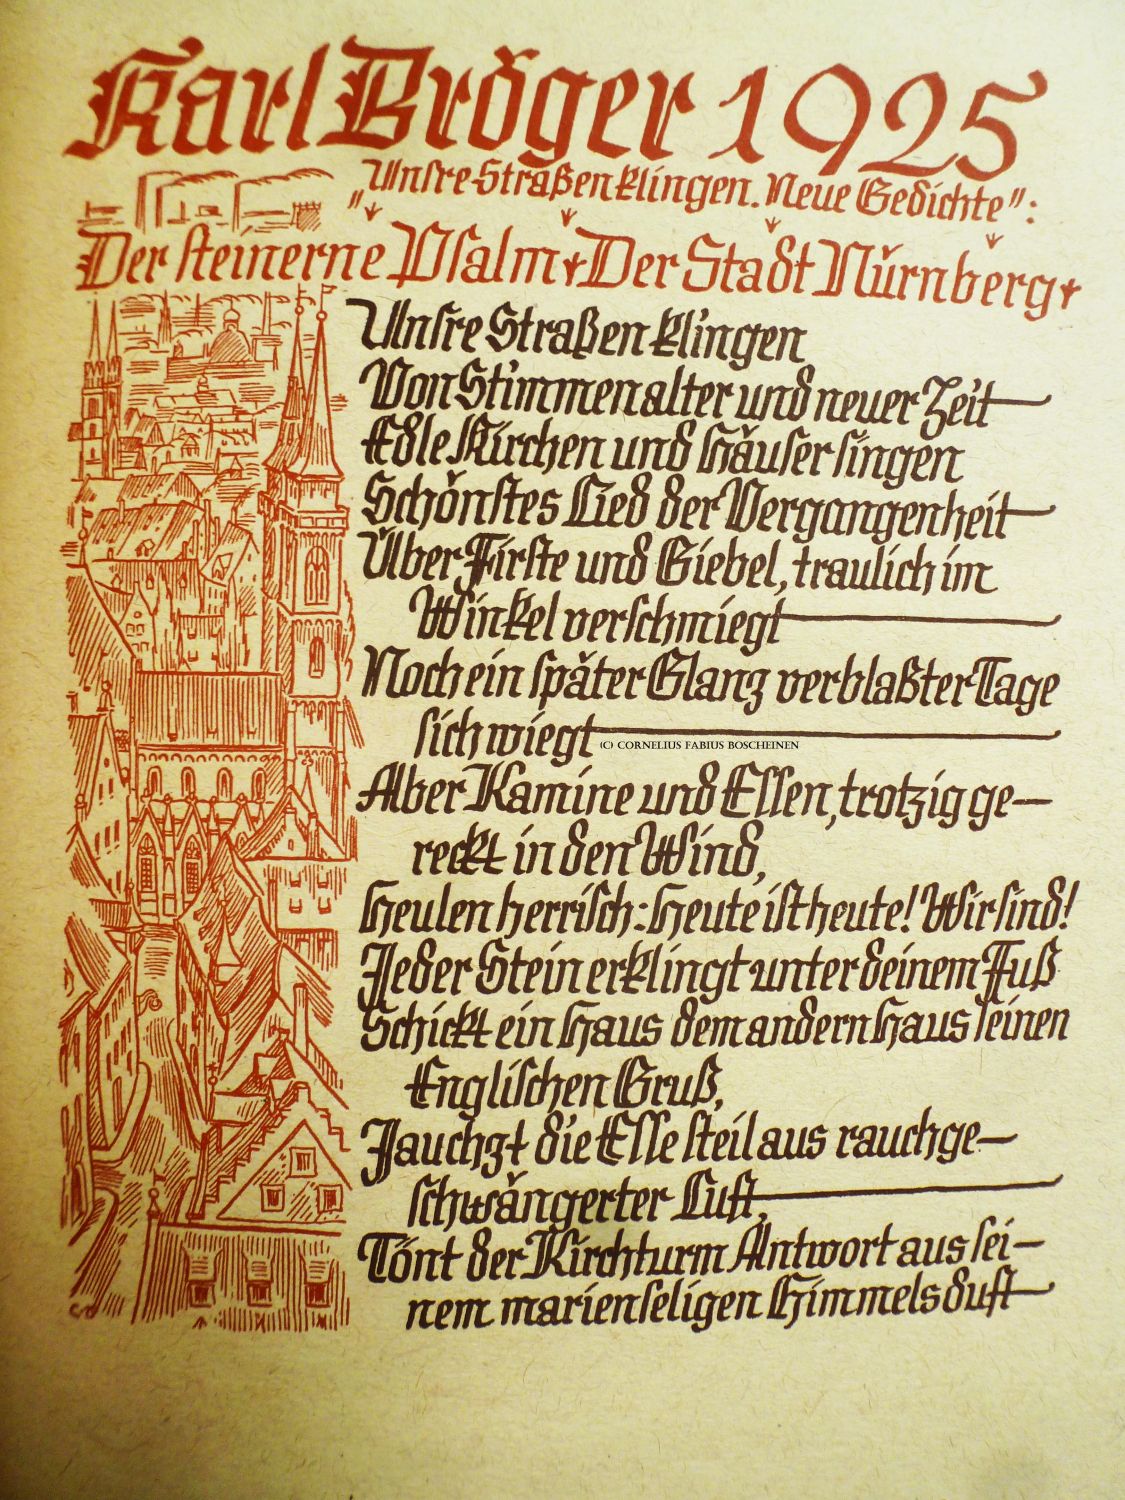 Karl Bröger 1925
„Unsre Straßen klingen. Neue Gedichte":
Der steinerne Psalm Der Stadt Nürnberg
Unsre Straßen klingen
Von Stimmen alter und neuer Zeit
Edle Kirchen und Häuser singen
Schönstes Lied der Vergangenheit
Über Firste und Giebel, traulich im
Winkel verschmiegt
Noch ein später Glanz verblaßter Tage
sich wiegt
(C) CORNELIUS FABIUS BOSCHEINEN
Aber Kamine und Essen, trotzig ge-
reckt in den Wind,
Heulen herrisch: Heute ist heute! Wir sind!
Jeder Stein erklingt unter deinem Fuß
Schickt ein Haus dem andern Haus seinen
Englischen Gruß,
Jauchzt die Esse steil aus rauchge-
schwängerter Luft,
Tönt der Kirchturm Antwort aus sei-
nem marienseligen Himmelsduft